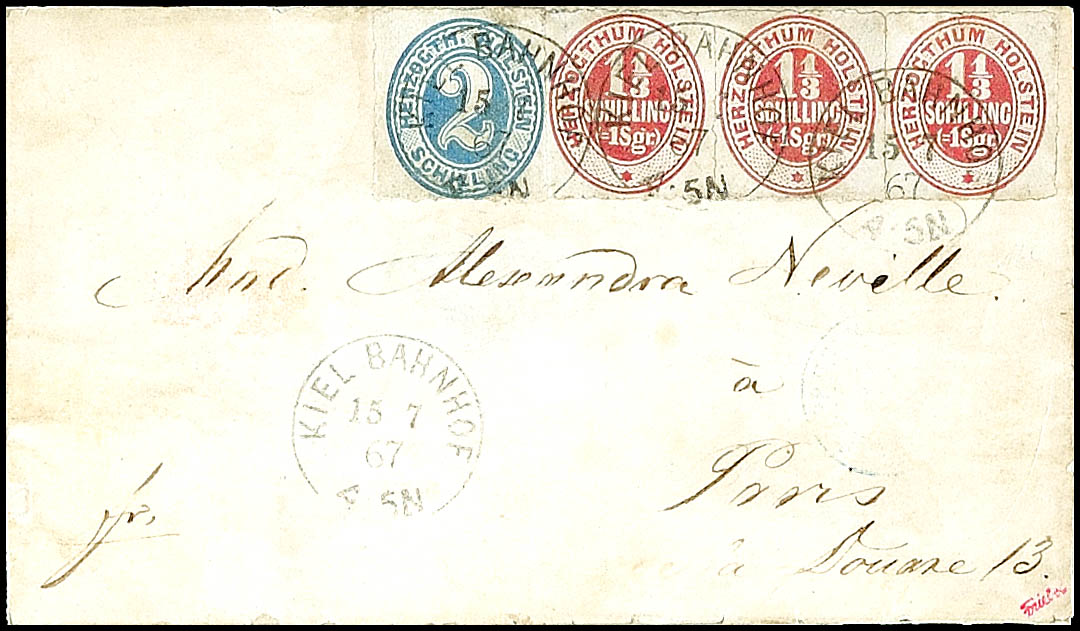 HERZOGTH. HOLSTEIN 2 SCHILLING
HERZOGTHUM HOLSTEIN 1 1/3 SCHILLING (=1Sgr)
HERZOGTHUM HOLSTEIN 1 1/3 SCHILLING (=1Sgr)
HERZOGTHUM HOLSTEIN 1 1/3 SCHILLING (=1Sgr)
KIEL BAHNHOF 15 5N
KIEL BAHNHOF 7 5N
KIEL BAHNHOF 15 7 67 5N
Alexandra Neville.
à
KIEL BAHNHOF
15 7
67
5N
Paris
fr.
à Douane 13.